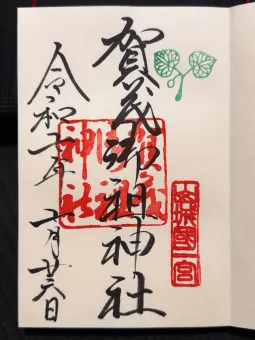 山城國一宮
賀茂御祖神社
賀茂御祖神社
令和七年 月廿 日